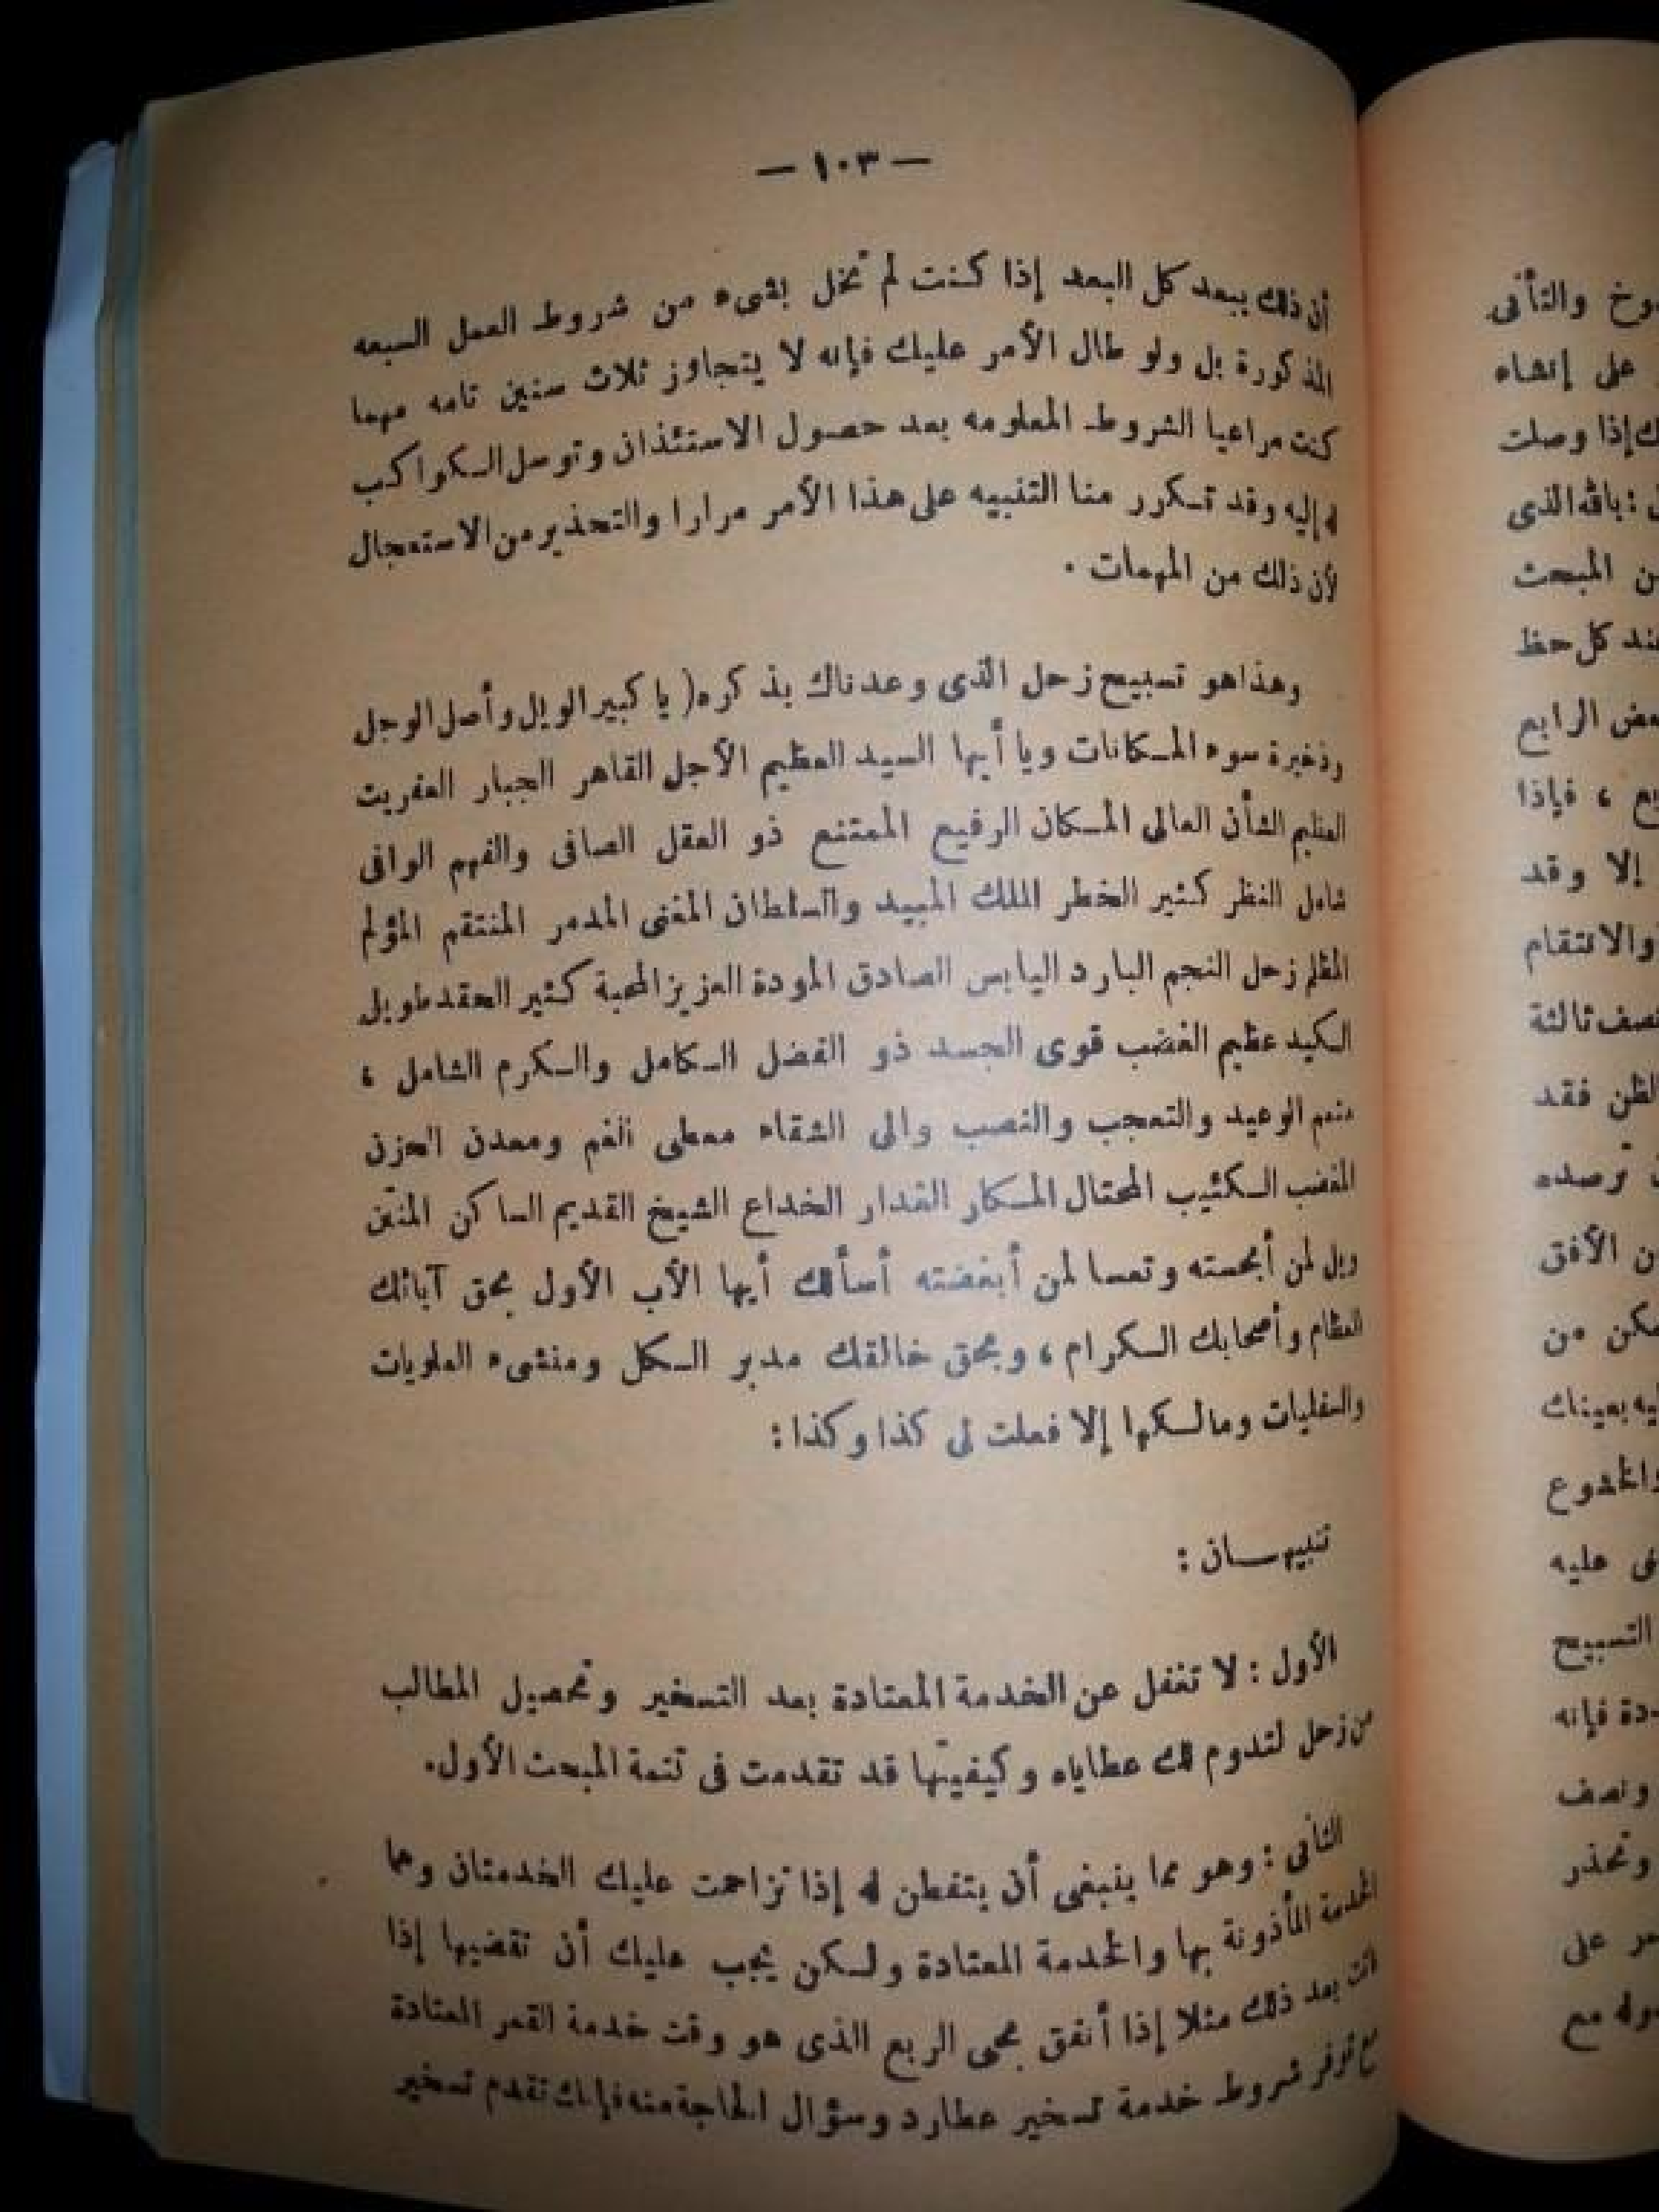 — ١٠٣ —
أن ذلك يبعد كل البعد إذا كنت لم تخل بشىء من شروط العمل السبعه
المذكورة بل ولو طال الأمر عليك فإنه لا يتجاوز ثلاث سنين تامه مهما
كنت مراعيا الشروط المعلومه بعد حصول الاستئذان وتوصل الكواكب
له إليه وقد تكرر منا التنبيه على هذا الأمر مرارا والتحذير من الاستعجال
لأن ذلك من المهمات .
وهذا هو تسبيح زحل الذى وعدناك بذكره ( يا كبير الويل وأصل الوجل
وذخيرة سوء المكانات ويا أيها السيد العظيم الأجل القاهر الجبار العفريت
العظيم الشأن العالى المكان الرفيع الممتنع ذو العقل الصافى والفهم الوافى
شامل النظر كثير الخطر الملك المبيد والسلطان المفنى المدمر المنتقم المؤلم
المظلم زحل النجم البارد اليابس الصادق المودة العزيز المحبة كثير الحقد طويل
الكيد عظيم الغضب قوى الجسد ذو الفضل الكامل والكرم الشامل ،
منعم الوعيد والتعجب والنصب والى الشقاء معطى الغم ومعدن الحزن
المغضب الكئيب المحتال المكار الغدار الخداع الشيخ القديم الساكن
ويل لمن أبحسته وتعسا لمن أبغضته أسألك أيها الأب الأول بحق آبائك
العظام وأصحابك الكرام ، وبحق خالقك مدبر الكل ومنشىء العلويات
والسفليات ومالكها إلا فعلت لى كذا وكذا :
تنبيهان :
الأول : لا تغفل عن الخدمة المعتادة بعد التسخير وتحصيل المطالب
من زحل لتدوم لك عطاياه وكيفيتها قد تقدمت فى تتمة المبحث الأول.
الثانى : وهو مما ينبغى أن يتفطن له إذا تزاحمت عليك الخدمتان وهما
الخدمة المأذونة بها والخدمة المعتادة ولكن يجب عليك أن تقضيها إذا
فاتت بعد ذلك مثلا إذا أتفق بمحى الربع الذى هو وقت خدمة القمر المعتادة
مع توفر شروط خدمة تسخير عطارد وسؤال الحاجة منه فإنك تقدم تسخير
والتأنى
على إنشاء
إذا وصلت
بالله الذى
المبحث
كل حظ
الرابع
، فإذا
إلا وقد
والانتقام
نصف ثالثة
الظن فقد
ترصده
الأفق
من
بعينك
والخشوع
عليه
التسبيح
فإنه
ونصف
وتحذر
على
مع